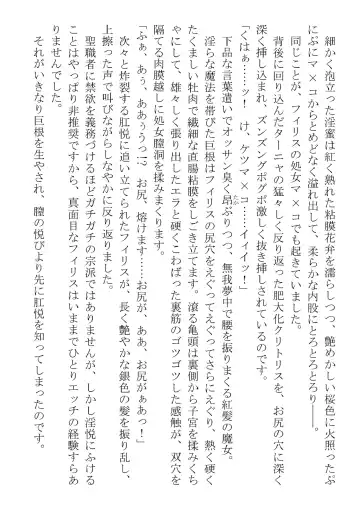 細かく泡立った淫蜜は紅く熟れた粘膜花弁を濡らしつつ、艶めかしい桜色に火照ったぷ
にぷにマ×コからとめどなく溢れ出して、柔らかな内股にとろとろとろり――。
同じことが、フィリスの処女マ×コでも起きていました。
背後に回り込んだターニャの猛々しく反り返った肥大化クリトリスを、お尻の穴に深く
深く挿し込まれ、ズンズングポグポ激しく抜き挿しされているのです。
「くはぁ……ッ！　け、ケツマ×コ……イイイッ！」
下品な言葉遣いでオッサン臭く昂ぶりつつ、無我夢中で腰を振りまくる紅髪の魔女。
淫らな魔法を帯びた巨根はフィリスの尻穴をえぐってえぐってさらにえぐり、熱く硬く
たくましい牡肉で繊細な直腸粘膜をしごき立てます。滾る亀頭は裏側から子宮を揉みくち
ゃにして、雄々しく張り出したエラと硬くこわばった裏筋のゴツゴツした感触が、双穴を
隔てる肉膜越しに処女膣洞を揉みまくります。
「ふぁ、あう、ああううっっ!?　お尻、熔けます……お尻が、ああ、お尻がぁあっ！」
次々と炸裂する肛悦に追い立てられたフィリスが、長く艶やかな銀色の髪を振り乱し、
上擦った声で叫びながらしなやかに反り返りました。
聖職者に禁欲を義務づけるほどガチガチの宗派ではありませんが、しかし淫悦にふける
ことはやっぱり非推奨ですから、真面目なフィリスはいままでひとりエッチの経験すらあ
りませんでした。
それがいきなり巨根を生やされ、膣の悦びより先に肛悦を知ってしまったのです。